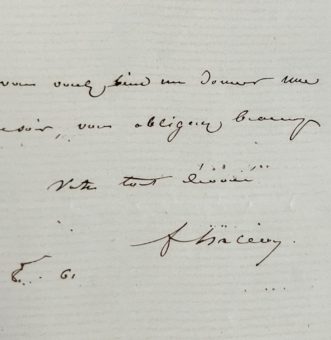 vous voulez bien me donner une
voir, vous obligerez beaucoup
Votre tout dévoué
61